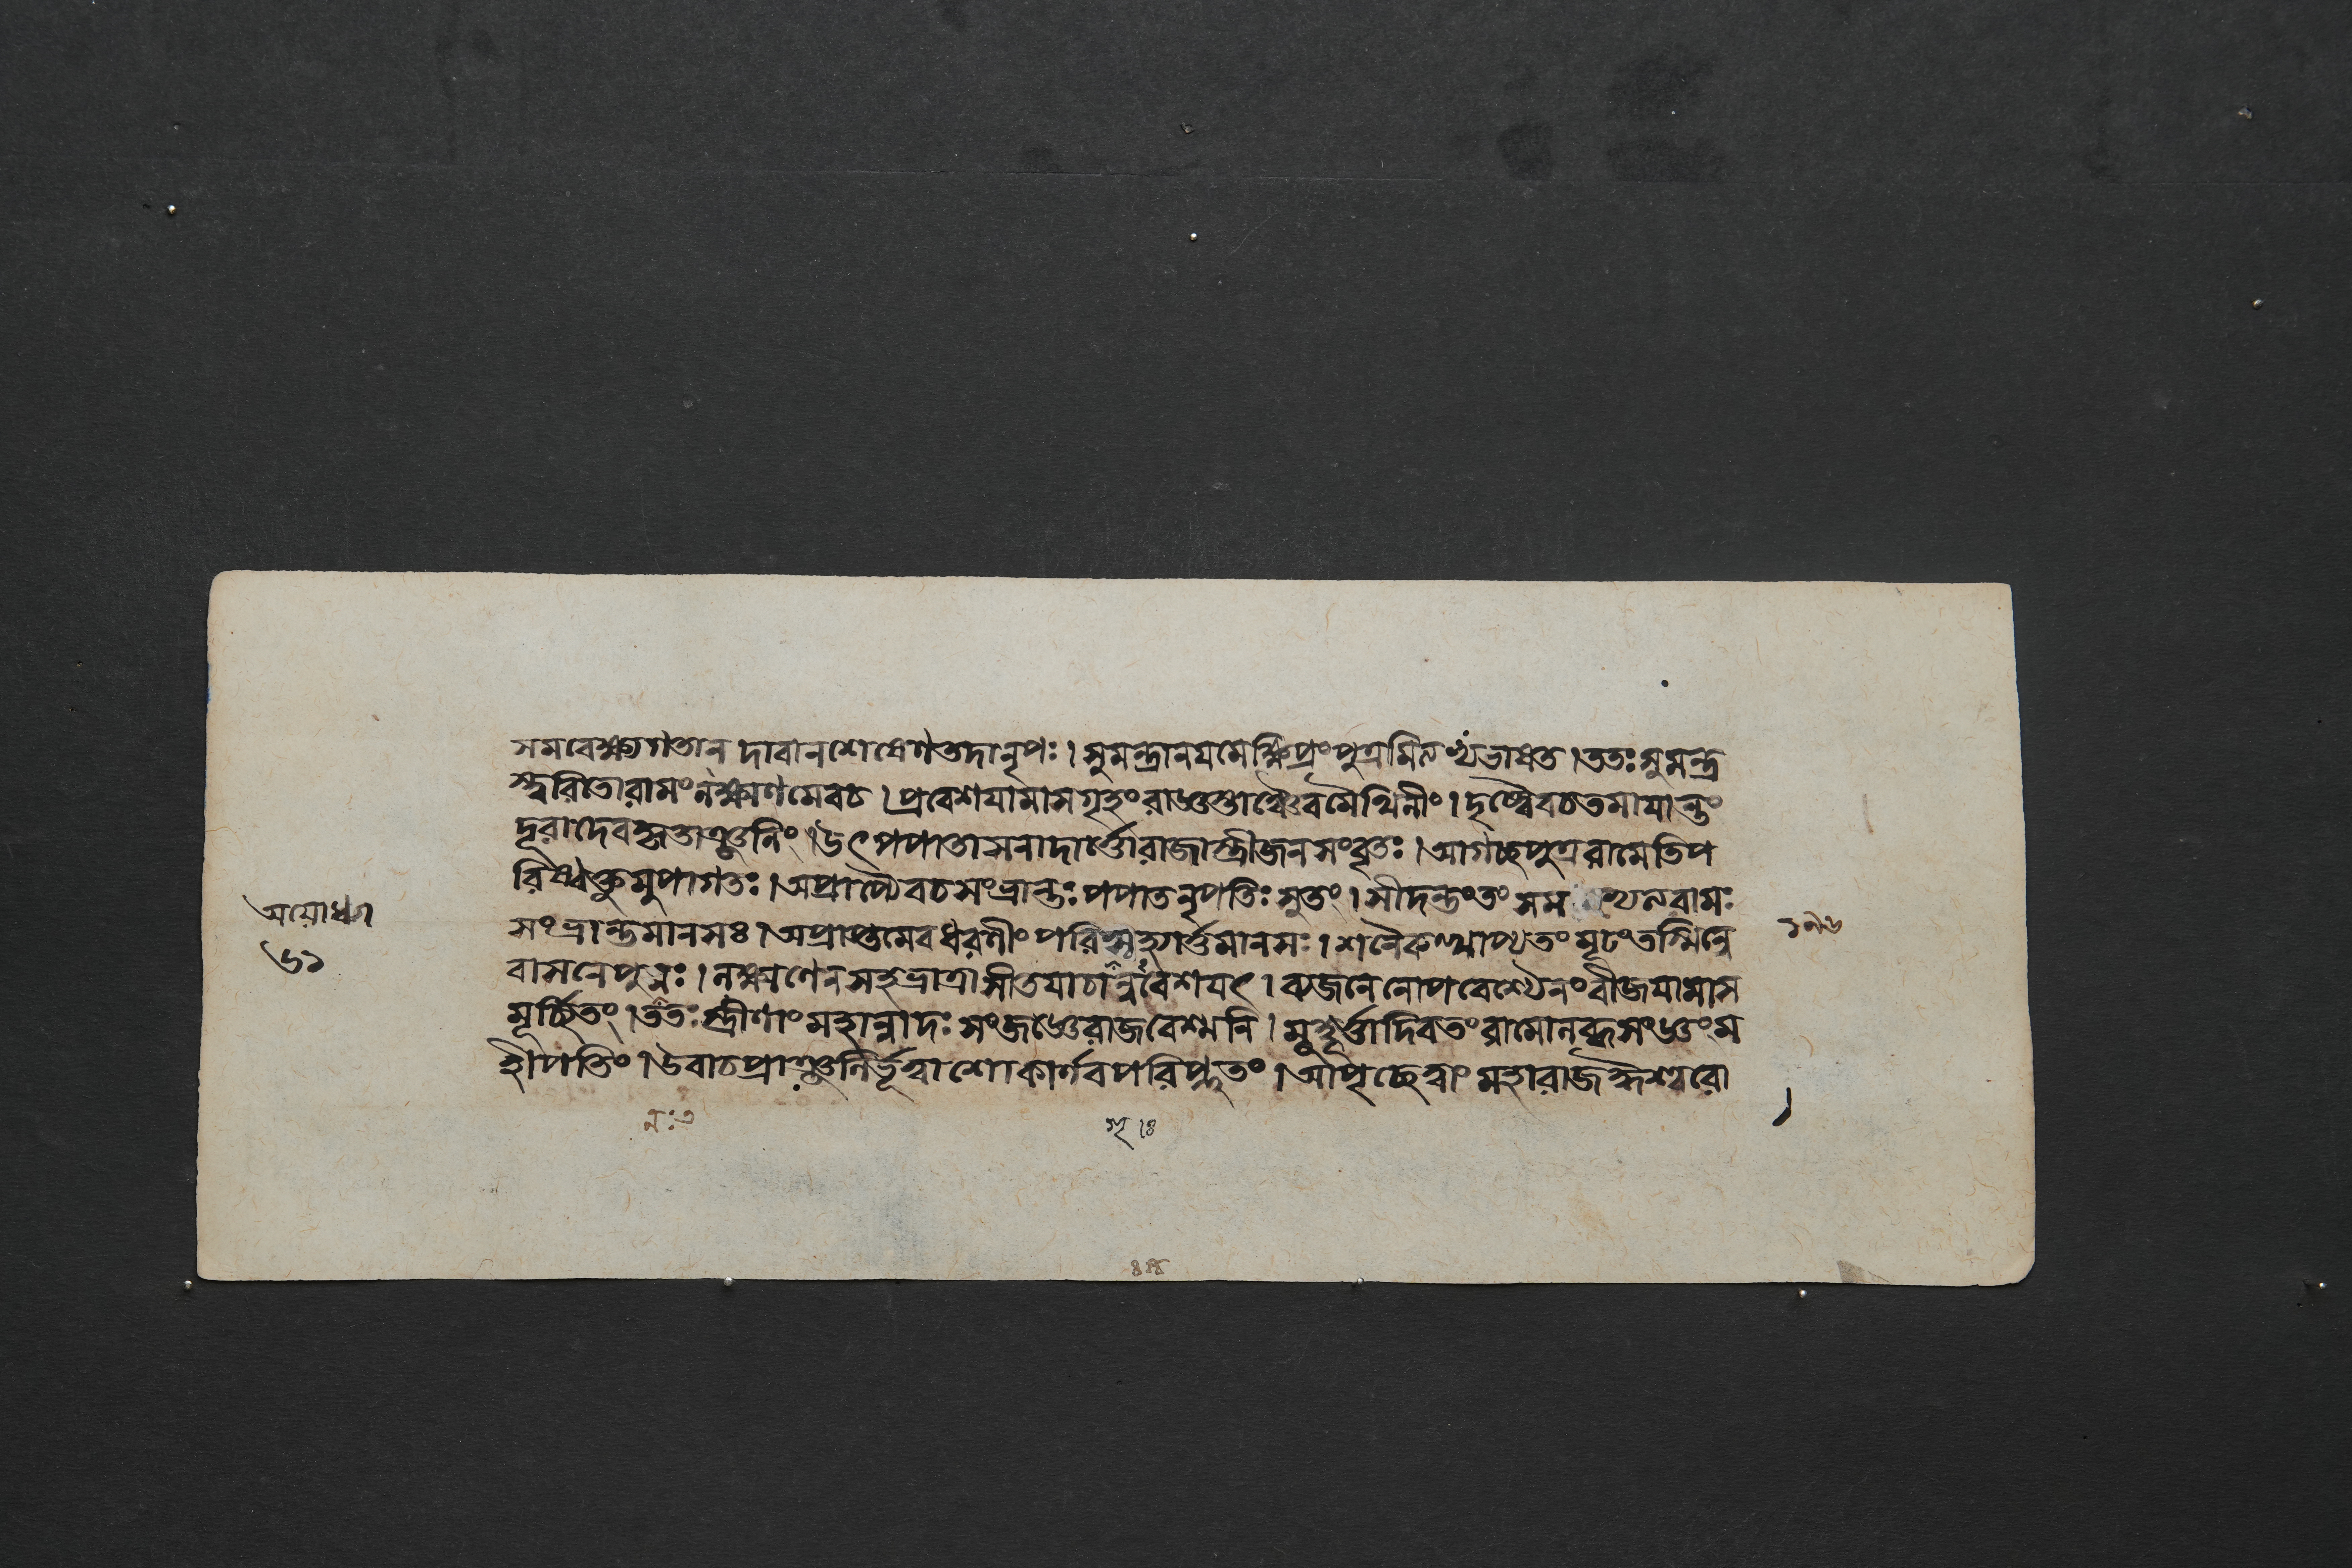 সমবেক্ষ্যগতান্ দাবানশেষেণতদানৃপঃ । সুমন্ত্রানযমেক্ষিপ্রংপুত্রমিত্যভাষত । ততঃসুমন্ত্র
স্ত্বরিতোরামংলক্ষ্মণমেবচ । প্রবেশযামাসগৃহংরাজ্ঞস্তাঞ্চৈবমৈথিলীং । দৃষ্ট্বৈবচতমাযান্তং
দূরাদেবকৃতাঞ্জলিং । উৎপপাতাসনাদার্ত্তোরাজাস্ত্রীজনসংবৃতঃ । আগচ্ছপুত্ররামেতিপ
রিষ্বক্তুমুপাগতঃ । অপ্রাপ্যৈবচসংভ্রান্তঃপপাতনৃপতিঃসুতং । সীদন্তংতং রামঃ
সংভ্রান্তমানসঃ । অপ্রাপ্তমেবধরণীংপরিগৃহ্যার্ত্তমানসঃ । শনৈরুত্থাপ্যতংমূঢংতস্মিন্নে
বাসনেপুনঃ । লক্ষ্মণেনসহভ্রাত্রাসীতযাচন্যবেশযৎ । ব্যজনেনোপবেশ্যৈনংবীজযামাস
মূর্চ্ছিতং । ততঃস্ত্রীণাংমহান্নাদঃসংজজ্ঞেরাজবেশ্মনি । মুহূর্ত্তাদিবতংরামোলব্ধসংজ্ঞংম
হীপতিং । উবাচপ্রাঞ্জলির্ভূত্বাশোকার্ণবপরিপ্লুতং । আপৃচ্ছেত্বাংমহারাজ
অযোধ্যা
৬১